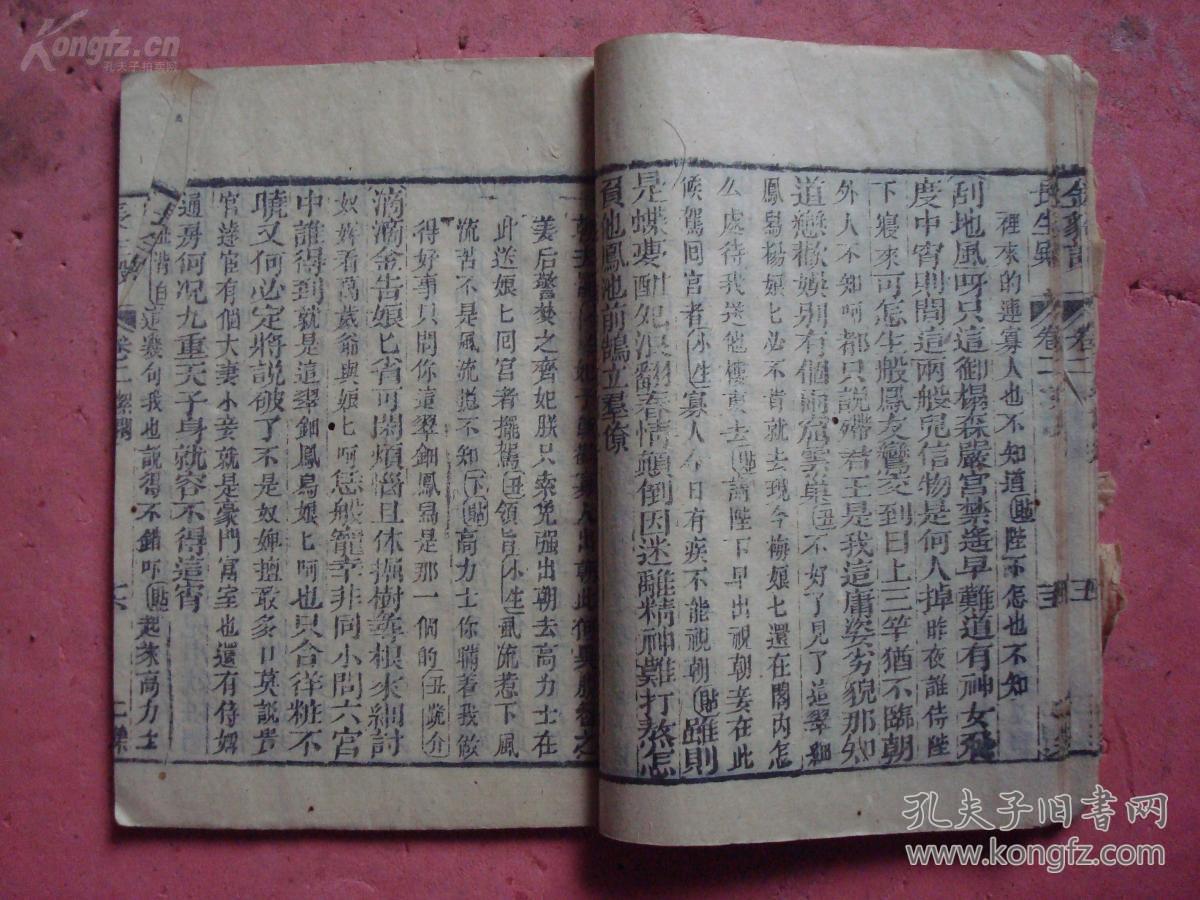 Kongfz.cn
孔夫子拍卖网
裡來的連寡人也不知道(貼)陛下怎也不知
刮地風呀只這御榻森嚴宮禁遙早難道有神女飛
度中宵則問這兩般兒信物是何人掉昨夜誰侍陛
下寢來可怎生般鳳友鸞交到日上三竿猶不臨朝
外人不知呵都只說殢君王是我這庸姿劣貌那知
道戀歡娛別有個雨窟雲巢(丑)不好了見了這翠鈿
鳳舄楊娘匕必不肯就去現今梅娘匕還在閣內怎
么處待我
去(貼)請陛下早出視朝妾在此
候駕囘宮者(小生)寡人今日有疾不能視朝(貼)雖則
是蝶夢酣
浪翻春情顛倒因迷離精神難打熬怎
負他鳳池前鵠立羣僚
姜后警
之齊妃朕只索免强出朝去高力士在
此送娘匕囘宮者擺駕(丑)領旨(小生)
流惹下風
流苦不是風流
不知(下)(貼)高力士你瞞着我做
得好事只問你這翠鈿鳳舄是那一個的(丑跪介)
滴滴金告娘匕省可閑煩惱且休掘樹尋根來細討
奴婢看萬歲爺與娘匕呵恁般寵幸非同小問六宮
中誰得到就是這翠鈿鳳舄娘匕呵也只合佯粧不
曉又何必定將説破了不是奴婢擅敢多口莫説貴
官達宦有個大妻小妾就是豪門富室也還有侍婢
通房何况九重天子身就容不得這宵
這幾句我也説得不錯吓(貼)起來高力士
長生殿
卷二
孔夫子旧书网
www.kongfz.com